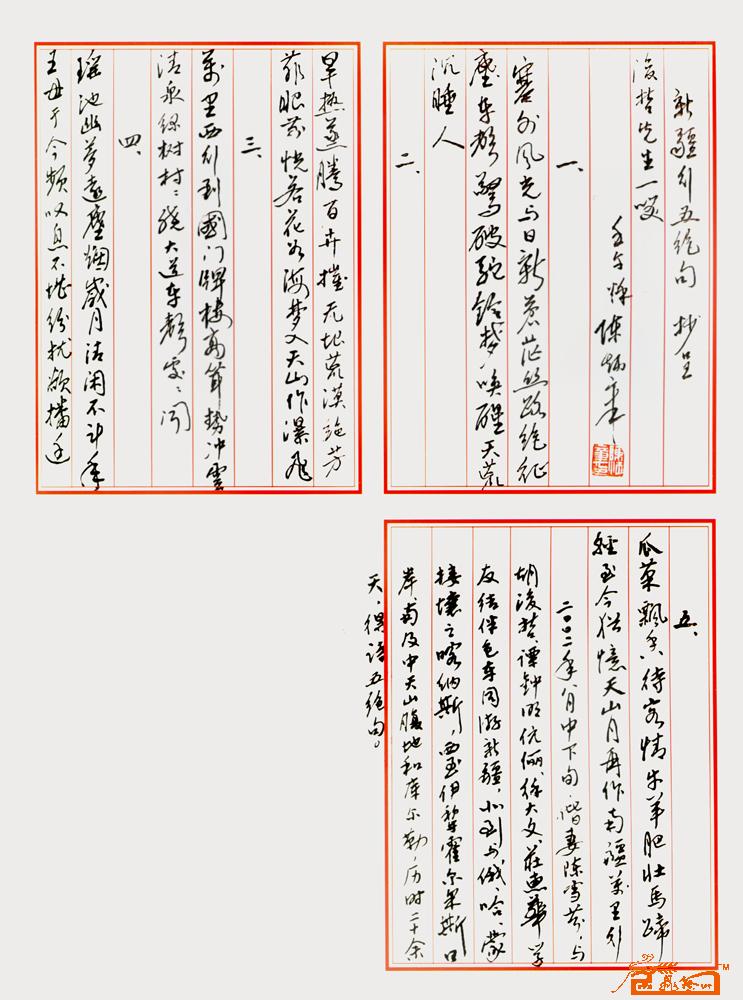 新疆行五绝句 抄呈
浚哲先生一哂
壬午秋 陈
一、
塞外风光与日新苍茫丝路绝征
尘车声惊破驼铃梦唤醒天荒
沉睡人
二、
旱热蒸腾百卉摧无垠荒漠绝芳
菲眼前恍若花如海梦入天山作瀑飛
三、
萬里西行到國门牌楼高耸势冲雲
清泉绿树村々绕大道车声處々闻
四、
瑶池幽梦遠塵烟歲月清闲不計年
王母于今频叹息不堪纷扰
五、
瓜菓飘香待客情牛羊肥壮马蹄
轻至今犹憶天山月再作南疆萬里行
二〇〇二年八月中下旬,偕妻陈雪芬,与
胡浚哲、谭钟明伉俪、徐大文、莊惠華学
友结伴包车同游新疆,北到与俄、哈、蒙
接壤之喀纳斯,西至伊犂霍尔果斯口
岸,南及中天山腹地和库尔勒,历时二十余
天,得诗五绝句。